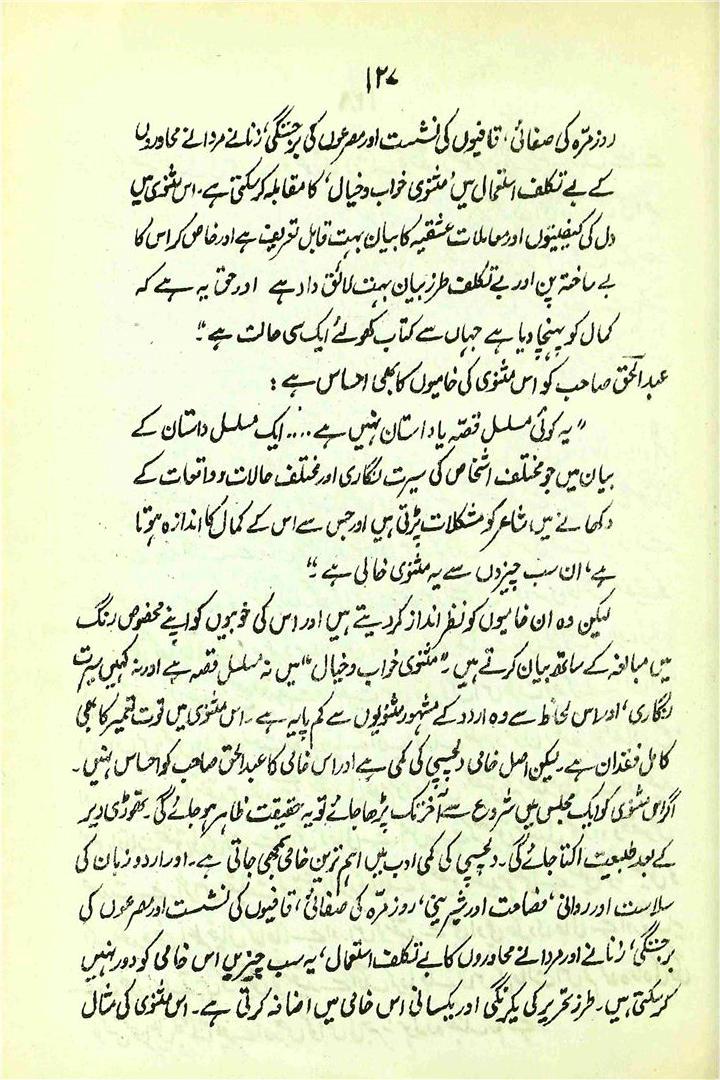 ۱۲۷
روزمرّہ کی صفائی، قافیوں کی نشست اور مصرعوں کی برجستگی، زنانے مردانے محاوروں
کے بے تکلف استعمال میں ’مثنوی خواب و خیال‘ کا مقابلہ کر سکتی ہے۔ اس مثنوی میں
دل کی کیفیتوں اور معاملات عشقیہ کا بیان بہت قابل تعریف ہے اور خاص کر اس کا
بے ساختہ پن اور بے تکلف طرز بیان بہت لائق داد ہے اور حق یہ ہے کہ
کمال کو پہنچا دیا ہے جہاں سے کتاب کھولئے ایک سی حالت ہے۔“
عبدالحق صاحب کو اس مثنوی کی خامیوں کا بھی احساس ہے :
”یہ کوئی مسلسل قصّہ یا داستان نہیں ہے .... ایک مسلسل داستان کے
بیان میں جو مختلف اشخاص کی سیرت نگاری اور مختلف حالات و واقعات کے
دکھانے میں شاعر کو مشکلات پڑتی ہیں اور جس سے اس کے کمال کا اندازہ ہوتا
ہے، ان سب چیزوں سے یہ مثنوی خالی ہے۔“
لیکن وہ ان خامیوں کو نظر انداز کر دیتے ہیں اور اس کی خوبیوں کو اپنے مخصوص رنگ
میں مبالغہ کے ساتھ بیان کرتے ہیں۔ ”مثنوی خواب و خیال“ میں نہ مسلسل قصہ ہے اور نہ کہیں سیرت
نگاری، اور اس لحاظ سے وہ اردو کے مشہور مثنویوں سے کم پایہ ہے۔ اس مثنوی میں قوت تعمیر کا بھی
کامل فقدان ہے۔ لیکن اصل خامی دلچسپی کی کمی ہے اور اس خامی کا عبدالحق صاحب کو احساس نہیں۔
اگر اس مثنوی کو ایک مجلس میں شروع سے آخر تک پڑھا جائے تو یہ حقیقت ظاہر ہو جائے گی۔ تھوڑی دیر
کے بعد طبیعت اکتا جائے گی۔ دلچسپی کی کمی ادب میں اہم ترین خامی سمجھی جاتی ہے۔ اور اردو زبان کی
سلاست اور روانی، فصاحت اور شیرینی، روزمرّہ کی صفائی، قافیوں کی نشست اور مصرعوں کی
برجستگی، زنانے اور مردانے محاوروں کا بے تکلف استعمال، یہ سب چیزیں اس خامی کو دور نہیں
کر سکتی ہیں۔ طرز تحریر کی یکرنگی اور یکسانی اس خامی میں اضافہ کرتی ہے۔ اس مثنوی کی مثال